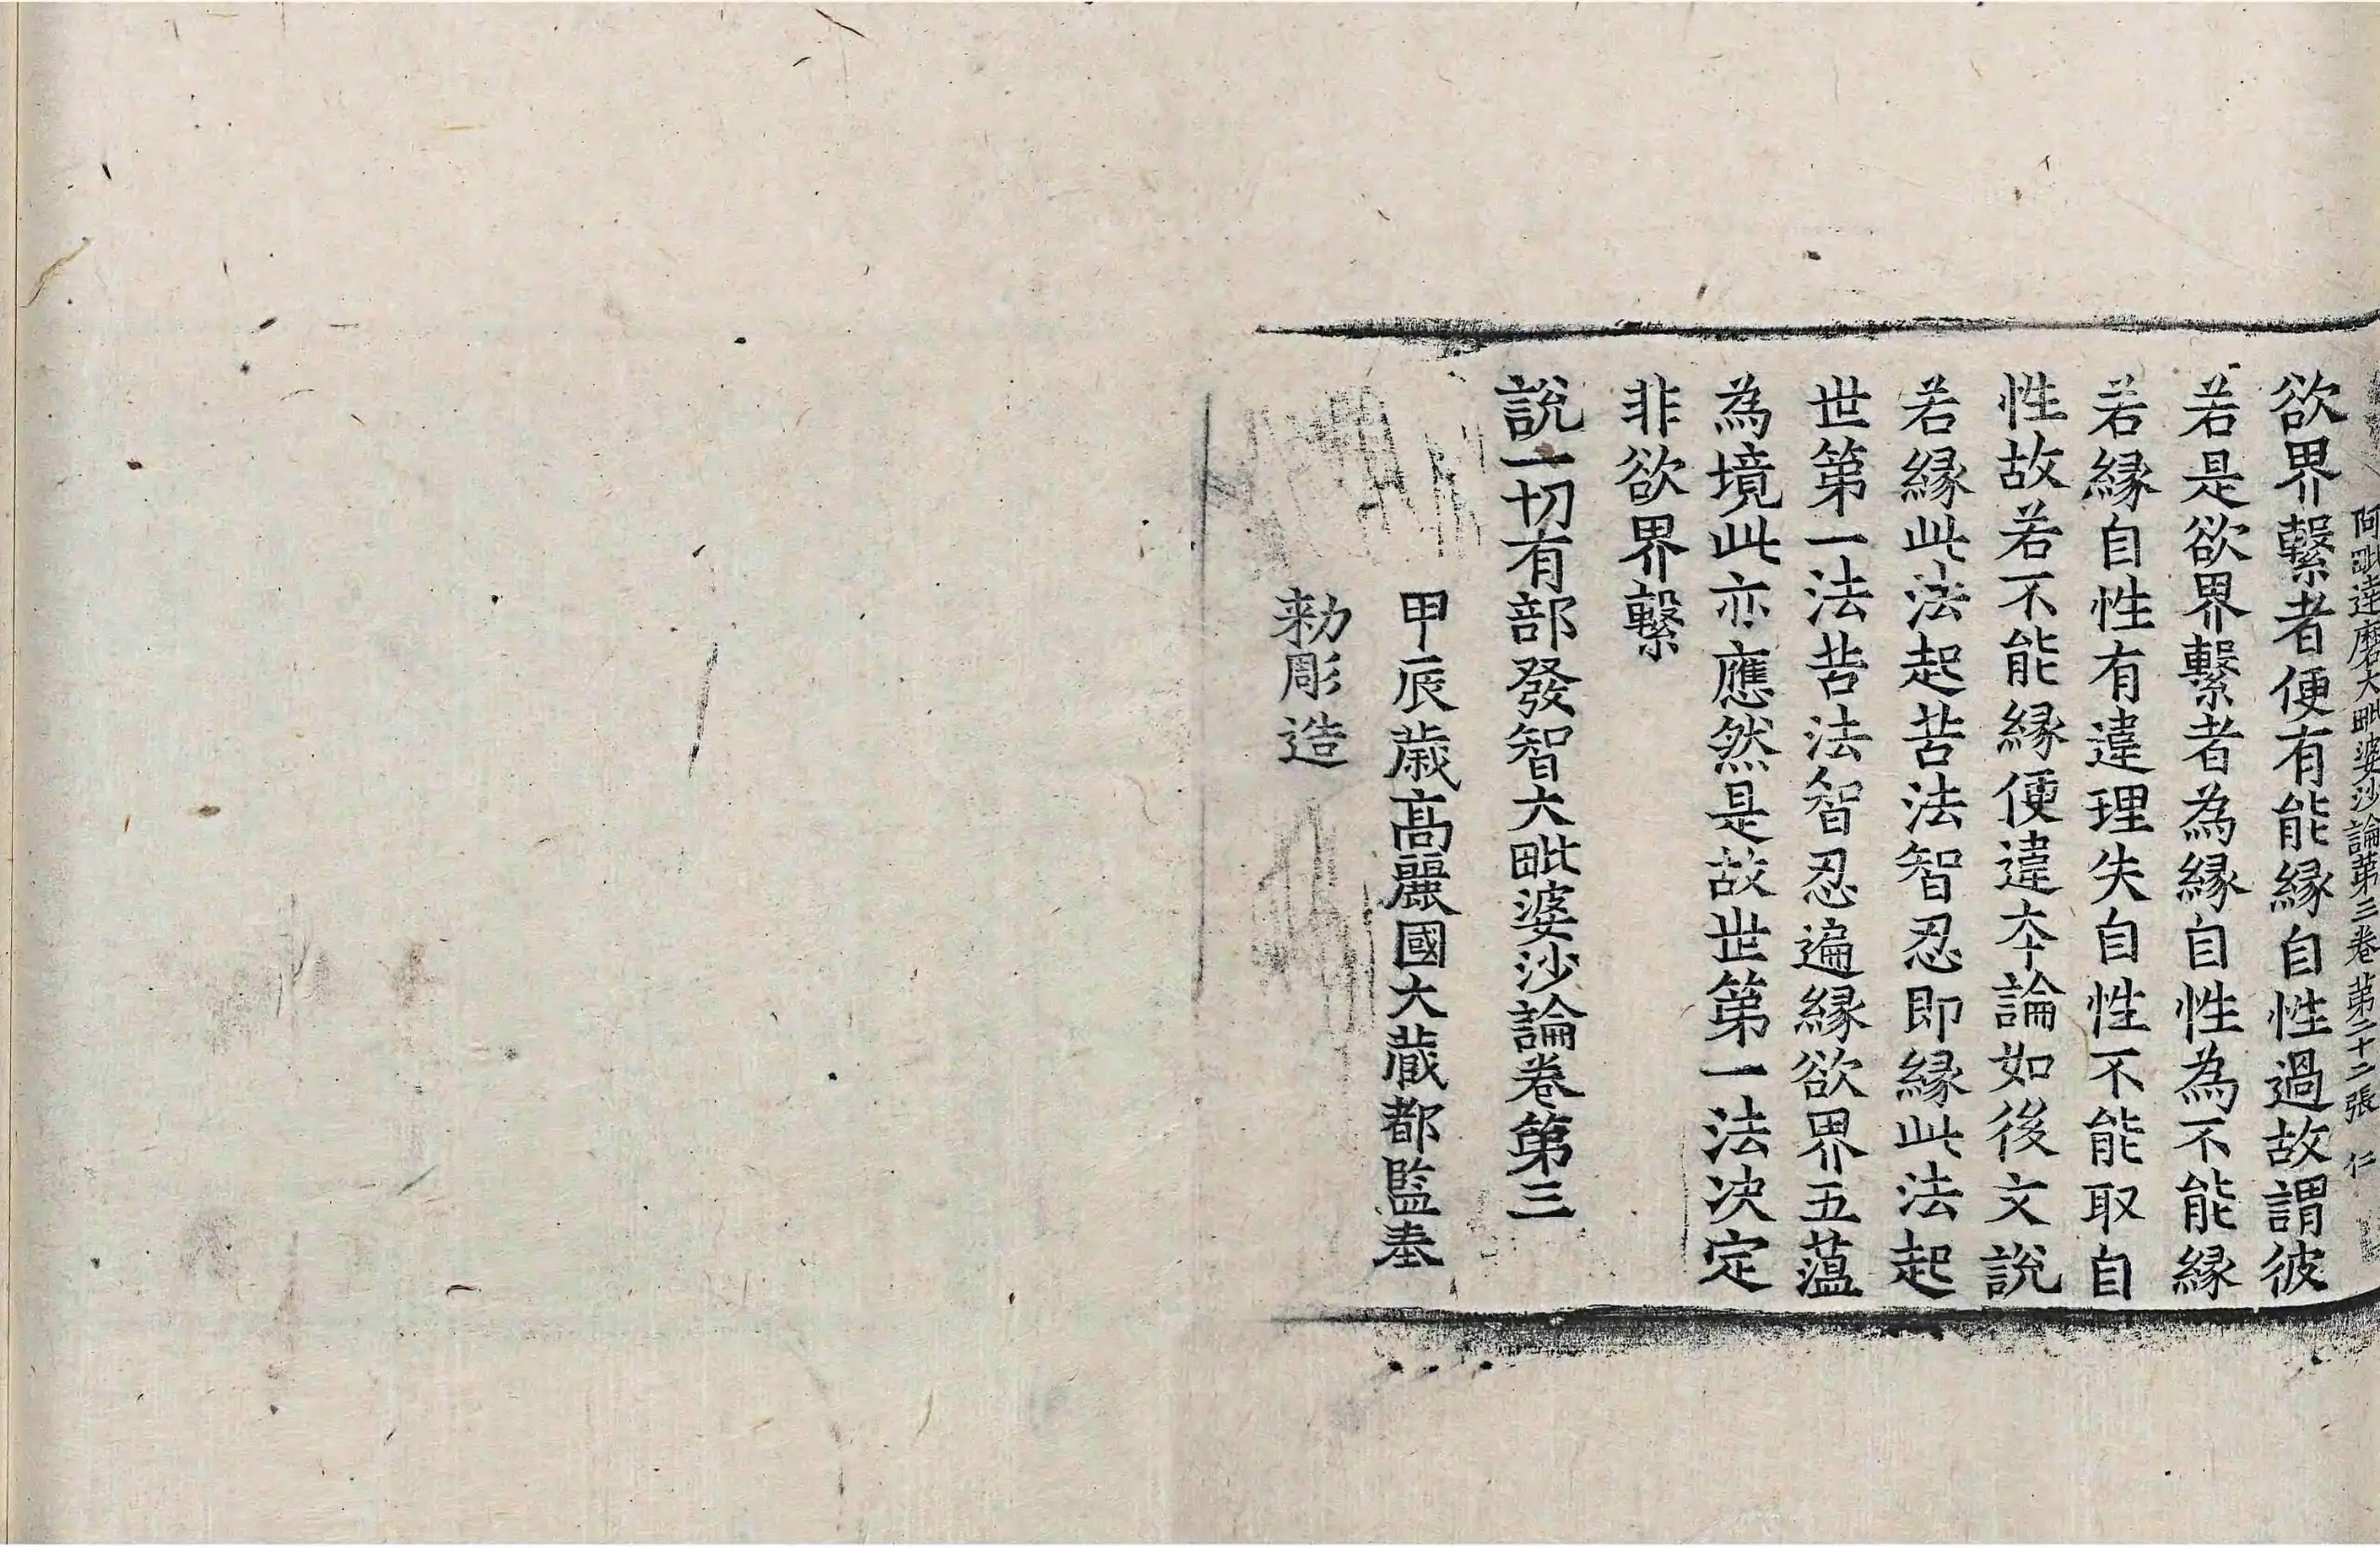 阿毗達磨大毗婆沙論第三卷 第二十二張 仁
欲界繫者便有能緣自性過故謂彼
若是欲界繫者為緣自性為不能緣
若緣自性有違理失自性不能取自
性故若不能緣便違夲論如後文說
若緣此法起苦法智忍即緣此法起
世第一法苦法智忍遍緣欲界五蘊
為境此亦應然是故世第一法決定
非欲界繫
說一切有部發智大毗婆沙論卷第三
甲辰歲高麗國大藏都監奉
勑彫造